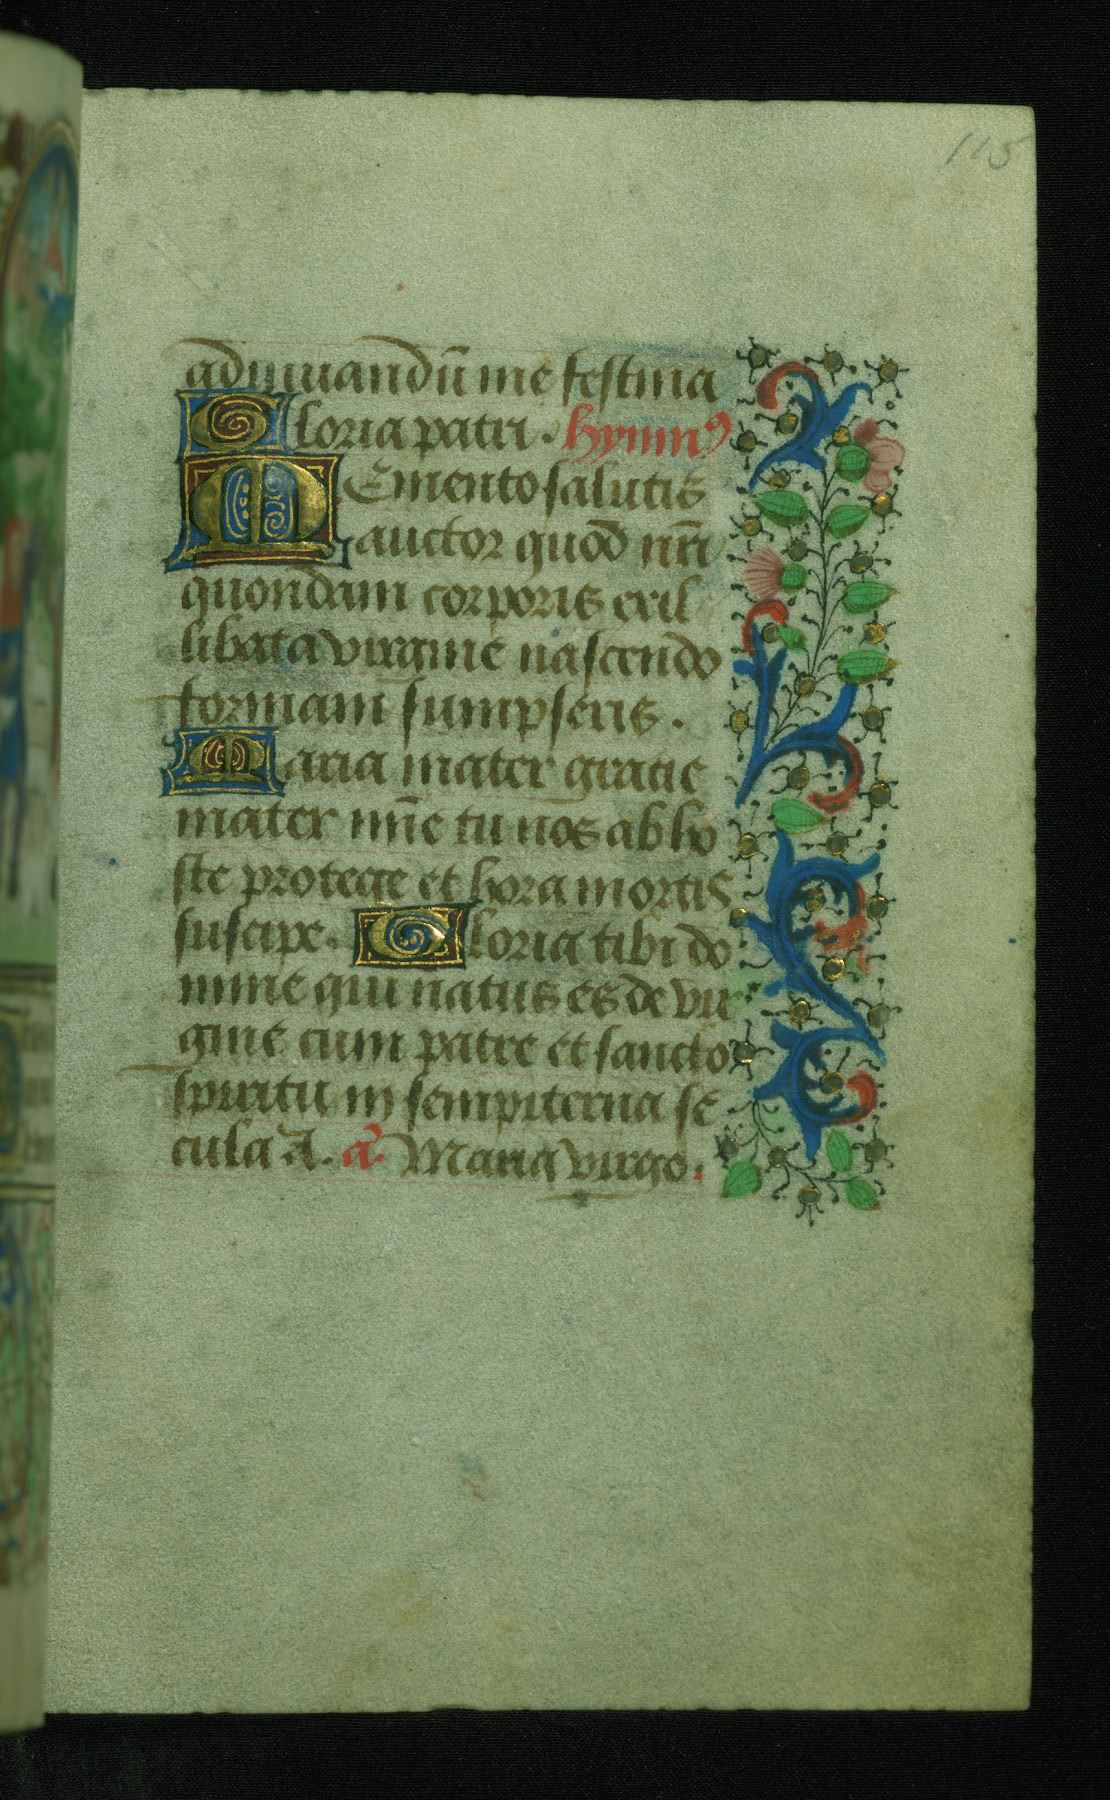 115
adiuuandū me festina
Gloria patri. Hymnꝰ
MEmento salutis
auctor quod nr̄i
quondam corporis exil
libata virgine nascendo
formam sumpseris.
Maria mater gratie
mater mīe tu nos ab ho
ste protege et hora mortis
suscipe. Gloria tibi do
mine qui natus es de vir
gine cum patre et sancto
spiritu in sempiterna se
cula A. añ Maria virgo.